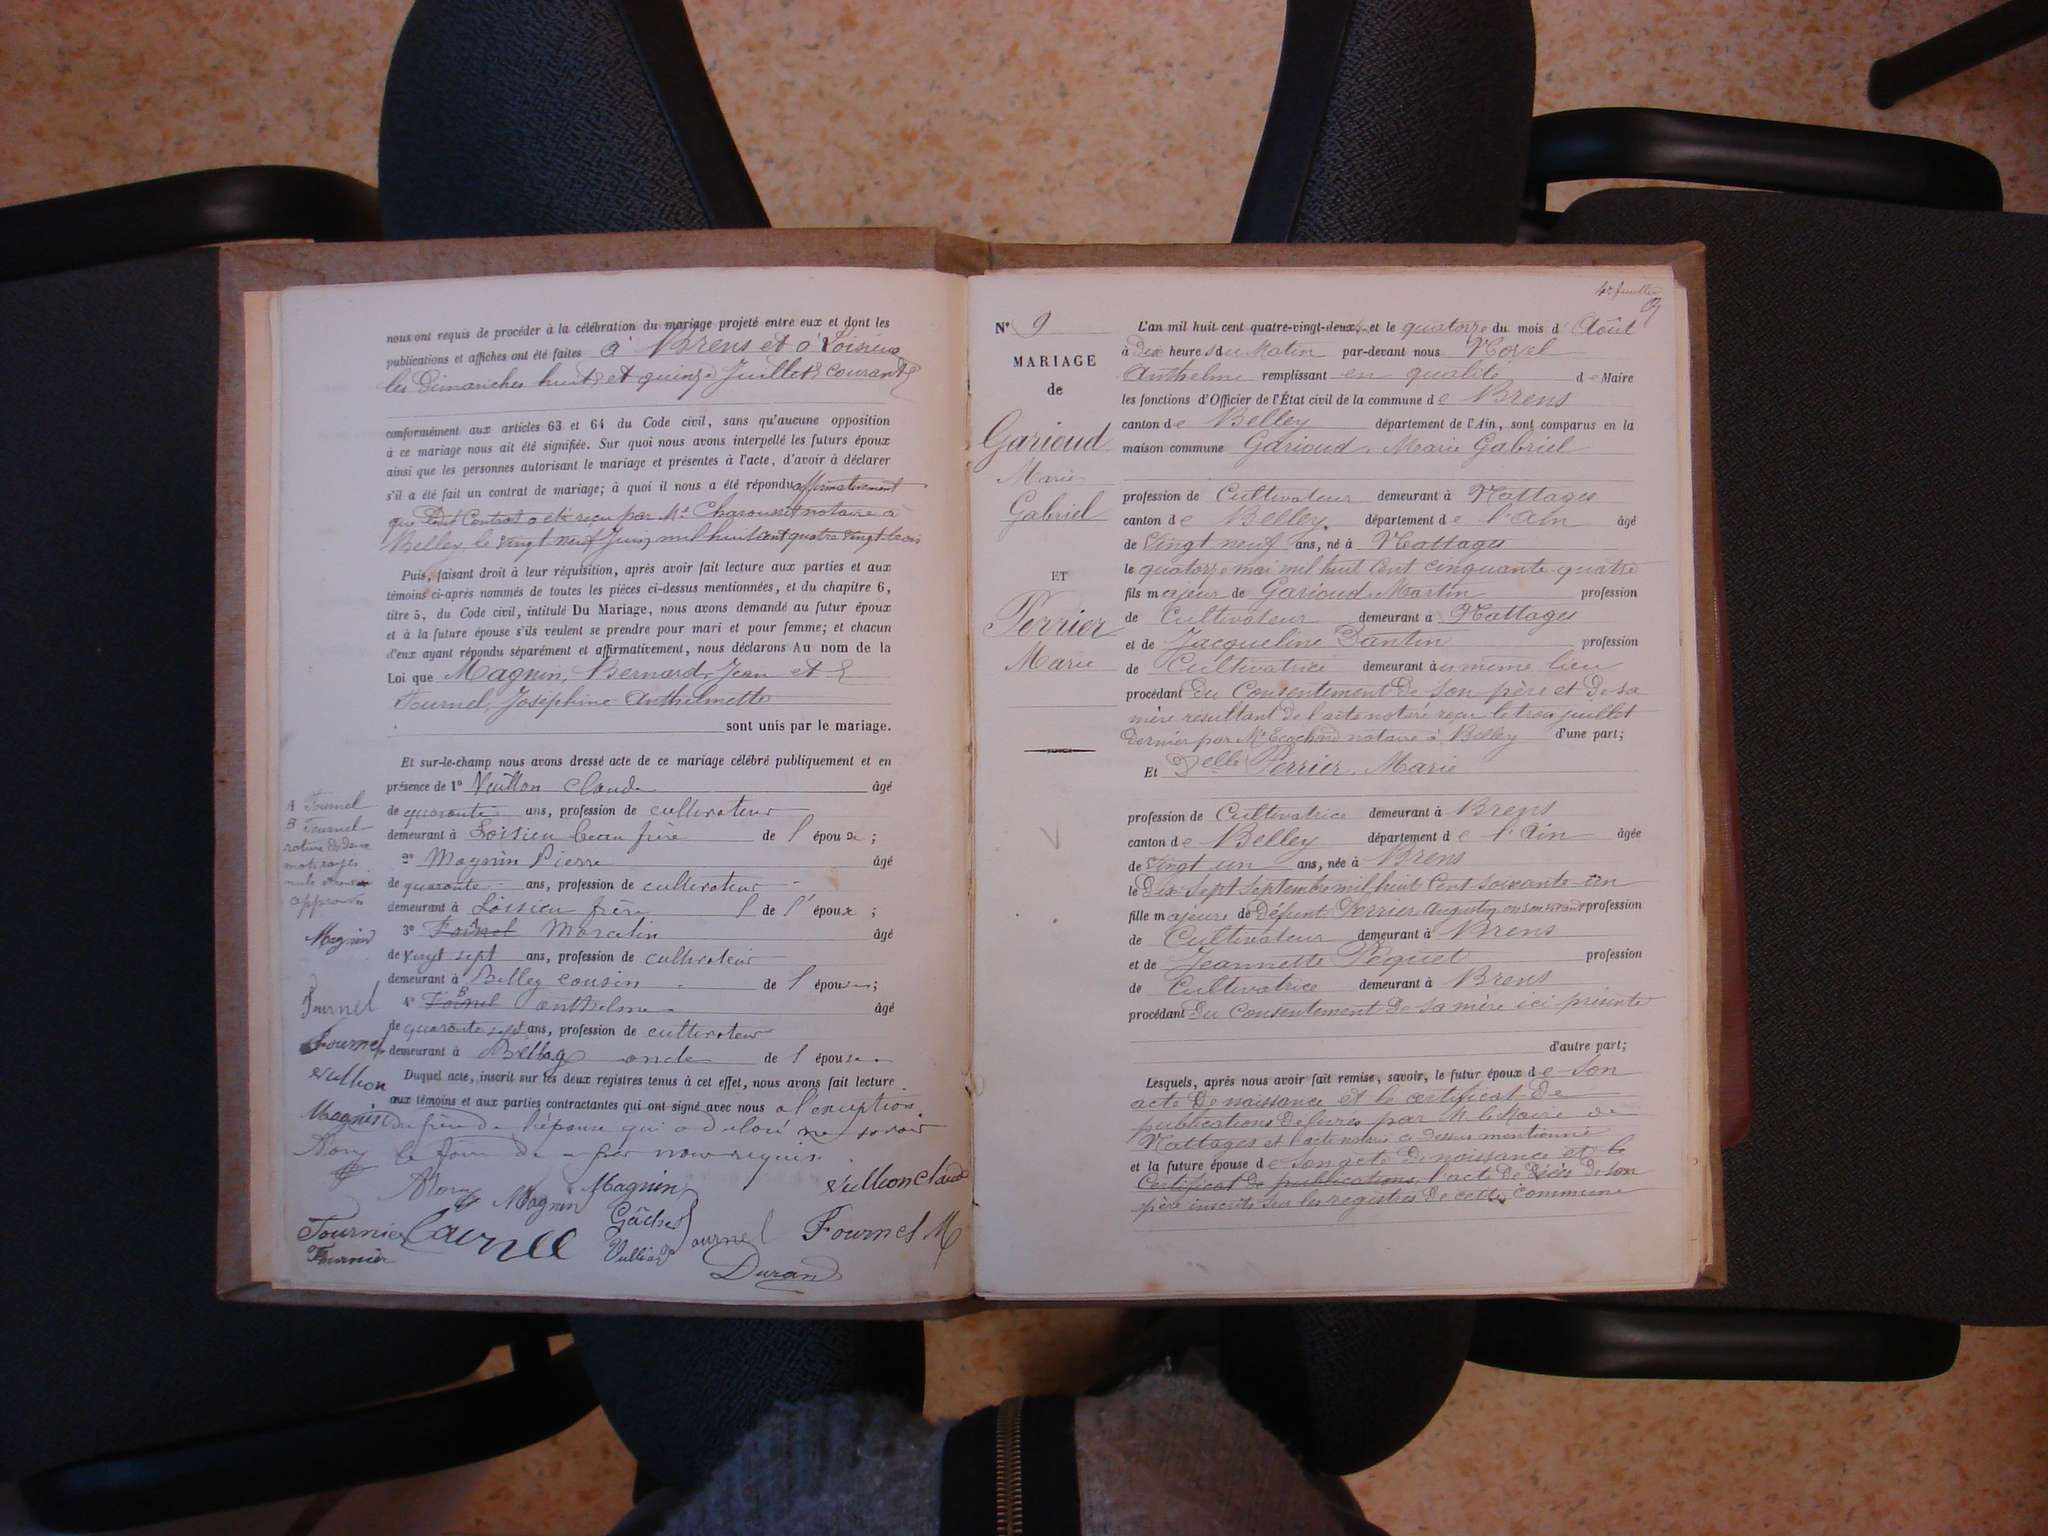 nous ont requis de procéder à la célébration du mariage projeté entre eux et dont les
publications et affiches ont été faites à Brens et à Loisieux
les dimanches huit et quinze Juillet courant
conformément aux articles 63 et 64 du Code civil, sans qu'aucune opposition
à ce mariage nous ait été signifiée. Sur quoi nous avons interpellé les futurs époux
ainsi que les personnes autorisant le mariage et présentes à l'acte, d'avoir à déclarer
s'il a été fait un contrat de mariage; à quoi il nous a été répondu affirmativement
que Contrat a été reçu par Me Charousset notaire à
Belley le vingt neuf Juin mil huit cent quatre vingt trois
Puis, faisant droit à leur réquisition, après avoir fait lecture aux parties et aux
témoins ci-après nommés de toutes les pièces ci-dessus mentionnées, et du chapitre 6,
titre 5, du Code civil, intitulé Du Mariage, nous avons demandé au futur époux
et à la future épouse s'ils veulent se prendre pour mari et pour femme; et chacun
d'eux ayant répondu séparément et affirmativement, nous déclarons Au nom de la
Loi que Magnin, Bernard, Jean et
Fournel, Joséphine Anthelmette
sont unis par le mariage.
Et sur-le-champ nous avons dressé acte de ce mariage célébré publiquement et en
présence de 1° Vullion Claude âgé
de quarante ans, profession de cultivateur
demeurant à Loisieu beau frère de l'époux;
2° Magnin Pierre âgé
de quarante ans, profession de cultivateur
demeurant à Loisieu frère de l'époux;
3° Foinel Marcelin âgé
de vingt sept ans, profession de cultivateur
demeurant à Belley cousin de l'épouse;
4° Foinel Anthelme âgé
de quarante sept ans, profession de cultivateur
demeurant à Belley oncle de l'épouse
Duquel acte, inscrit sur les deux registres tenus à cet effet, nous avons fait lecture
aux témoins et aux parties contractantes qui ont signé avec nous à l'exception
du frère de l'épouse qui a déclaré ne savoir
le faire de ce requis
A Fournel
B Fournel
rature de deux
mots rayés
nuls
approuvé
Magnin
Fournel
Fournel
Vullion
Magnin
Magnin
Magnin
Vullion Claude
Fournier
Fournier
Gâche
Fournel
Fournel M
Durand
Nº 9
MARIAGE
de
Garioud
Marie
Gabriel
ET
Perrier
Marie
L'an mil huit cent quatre-vingt-deux et le quatorze du mois d'Août
à Dix heures du Matin par-devant nous Morel
Anthelme remplissant en qualité de Maire
les fonctions d'Officier de l'État civil de la commune de Brens
canton de Belley département de l'Ain, sont comparus en la
maison commune Garioud, Marie Gabriel
profession de Cultivateur demeurant à Nattages
canton de Belley, département de l'Ain âgé
de Vingt neuf ans, né à Nattages
le quatorze mai mil huit Cent cinquante quatre
fils majeur de Garioud Martin profession
de Cultivateur demeurant à Nattages
et de Jacqueline Dantin profession
de Cultivatrice demeurant au même lieu
procédant du Consentement de son père et de sa
mère résultant de l'acte notarié reçu le trois juillet
dernier par Me Ecochard notaire à Belley d'une part;
Et Delle Perrier, Marie
profession de Cultivatrice demeurant à Brens
canton de Belley département de l'Ain âgée
de Vingt un ans, née à Brens
le Dix sept Septembre mil huit Cent soixante un
fille majeure de Défunt Perrier Augustin en son vivant profession
de Cultivateur demeurant à Brens
et de Jeannette Péquet profession
de Cultivatrice demeurant à Brens
procédant du Consentement de sa mère ici présente
d'autre part;
Lesquels, après nous avoir fait remise, savoir, le futur époux de son
acte De naissance et le certificat De
publications délivrés par M. le Maire de
Nattages et l'acte notarié ci dessus mentionné
et la future épouse de son acte De naissance et le
Certificat de publications, l'acte de Décès de son
père inscrits sur les registres de cette commune